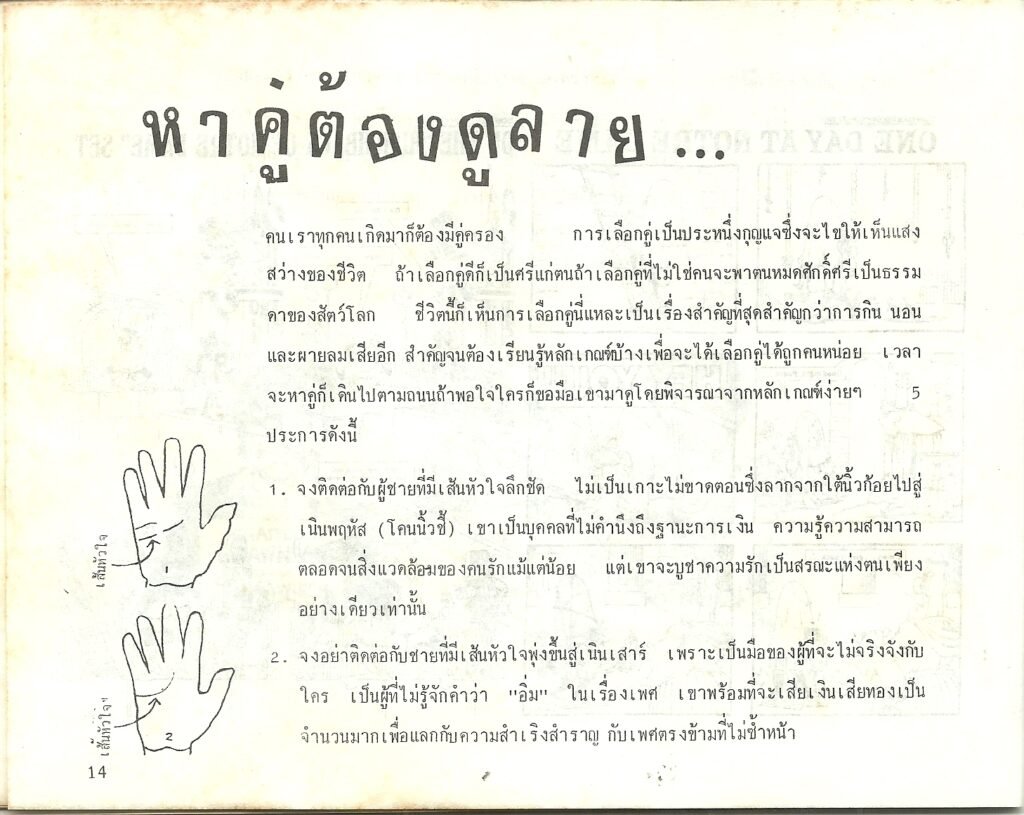 หาคู่ต้องดูลาย...
คนเราทุกคนเกิดมาก็ต้องมีคู่ครอง การเลือกคู่เป็นประหนึ่งกุญแจซึ่งจะไขให้เห็นแสง
สว่างของชีวิต ถ้าเลือกคู่ดีก็เป็นศรีแก่ตนถ้าเลือกคู่ที่ไม่ใช่คนจะพาตนหมดศักดิ์ศรีเป็นธรรม
ดาของสัตว์โลก ชีวิตนี้ก็เห็นการเลือกคู่นี่แหละเป็นเรื่องสำคัญที่สุดสำคัญกว่าการกิน นอน
และผายลมเสียอีก สำคัญจนต้องเรียนรู้หลักเกณฑ์บ้างเพื่อจะได้เลือกคู่ได้ถูกคนหน่อย เวลา
จะหาคู่ก็เดินไปตามถนนถ้าพอใจใครก็ขอมือเขามาดูโดยพิจารณาจากหลักเกณฑ์ง่ายๆ 5
ประการดังนี้
1. จงติดต่อกับผู้ชายที่มีเส้นหัวใจลึกชัด ไม่เป็นเกาะไม่ขาดตอนซึ่งลากจากใต้นิ้วก้อยไปสู่
เนินพฤหัส (โคนนิ้วชี้) เขาเป็นบุคคลที่ไม่คำนึงถึงฐานะการเงิน ความรู้ความสามารถ
ตลอดจนสิ่งแวดล้อมของคนรักแม้แต่น้อย แต่เขาจะบูชาความรักเป็นสรณะแห่งตนเพียง
อย่างเดียวเท่านั้น
เส้นหัวใจ
1
2. จงอย่าติดต่อกับชายที่มีเส้นหัวใจพุ่งขึ้นสู่เนินเสาร์ เพราะเป็นมือของผู้ที่จะไม่จริงจังกับ
ใคร เป็นผู้ที่ไม่รู้จักคำว่า "อิ่ม" ในเรื่องเพศ เขาพร้อมที่จะเสียเงินเสียทองเป็น
จำนวนมากเพื่อแลกกับความสำเริงสำราญ กับเพศตรงข้ามที่ไม่ซ้ำหน้า
เส้นหัวใจ
2
14